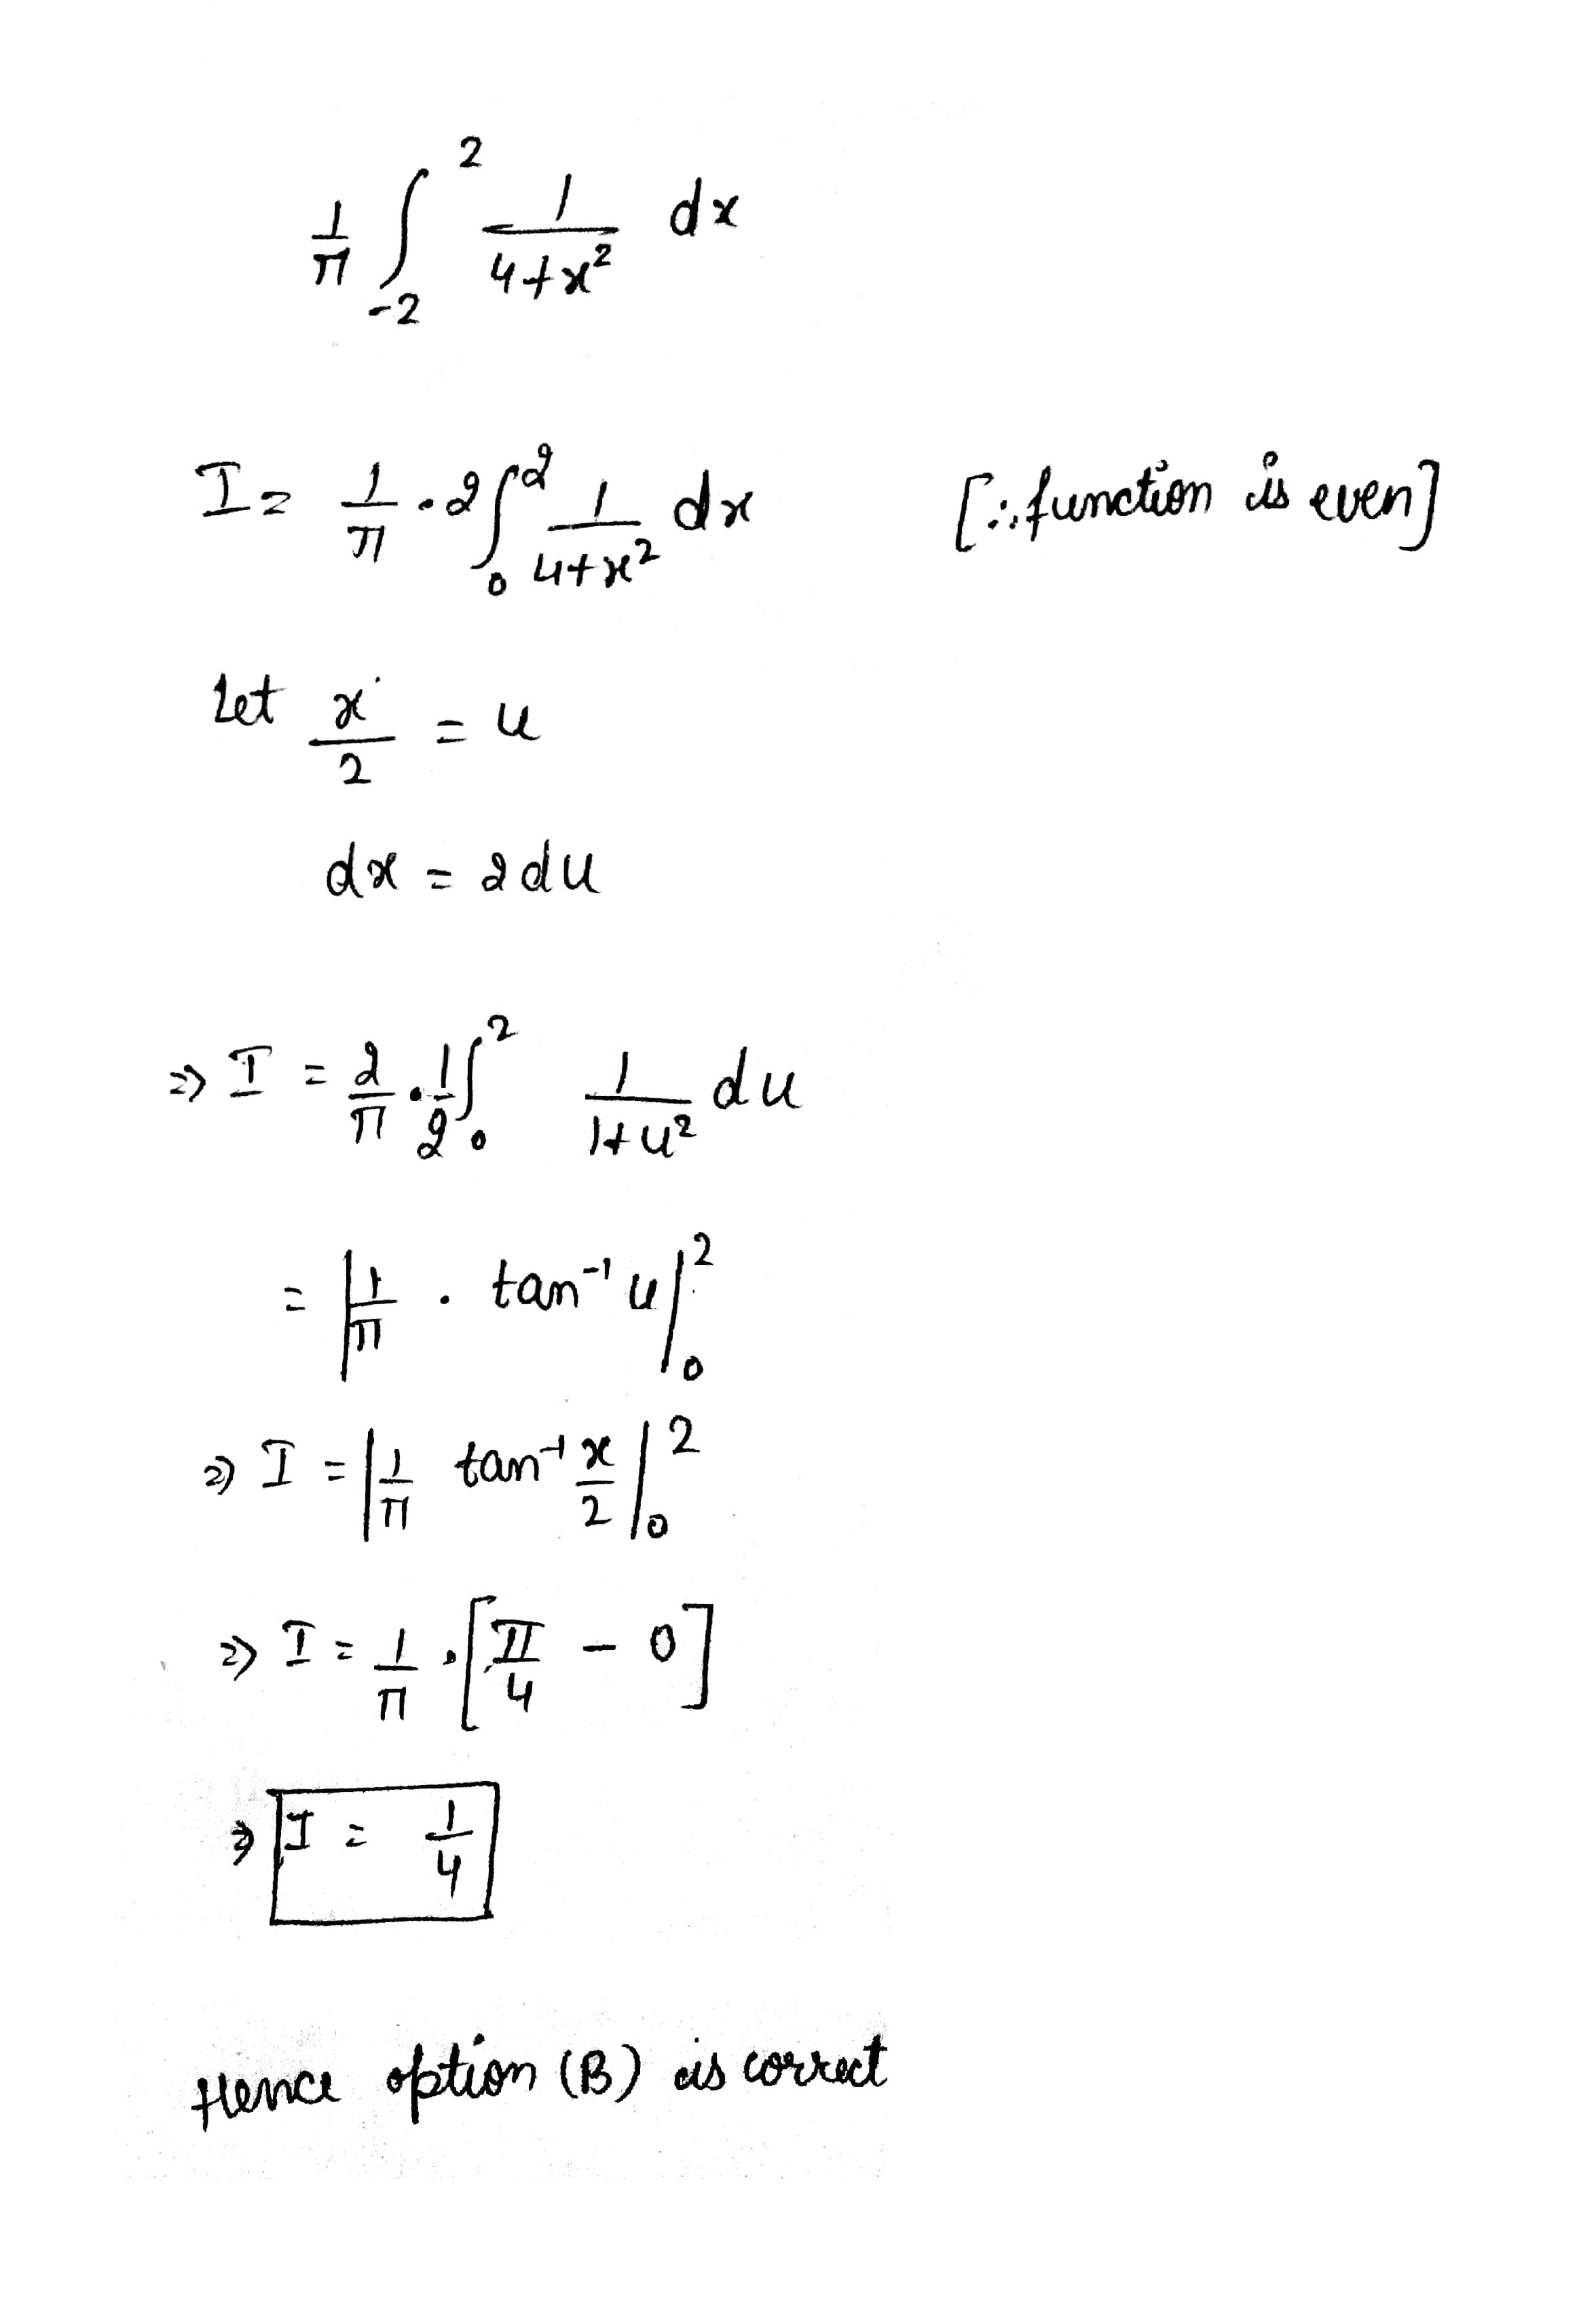 1/π ∫₋₂² 1/(4+x²) dx
I = 1/π · 2∫₀² 1/(4+x²) dx [∵ function is even]
Let x/2 = u
dx = 2du
⇒ I = 2/π · 1/2 ∫₀² 1/(1+u²) du
= |1/π · tan⁻¹ u|₀²
⇒ I = |1/π tan⁻¹ x/2|₀²
⇒ I = 1/π · [π/4 - 0]
⇒ I = 1/4
Hence option (B) is correct